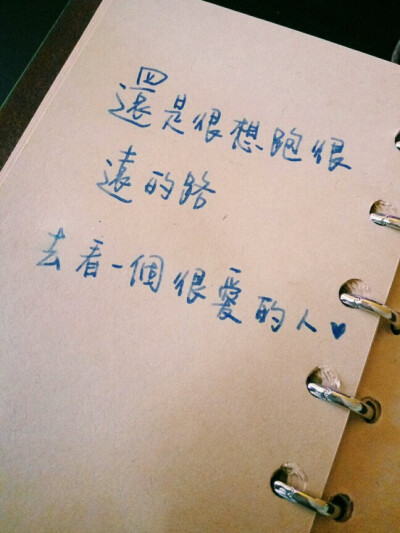 還是很想跑很
遠的路
去看一個很愛的人♥